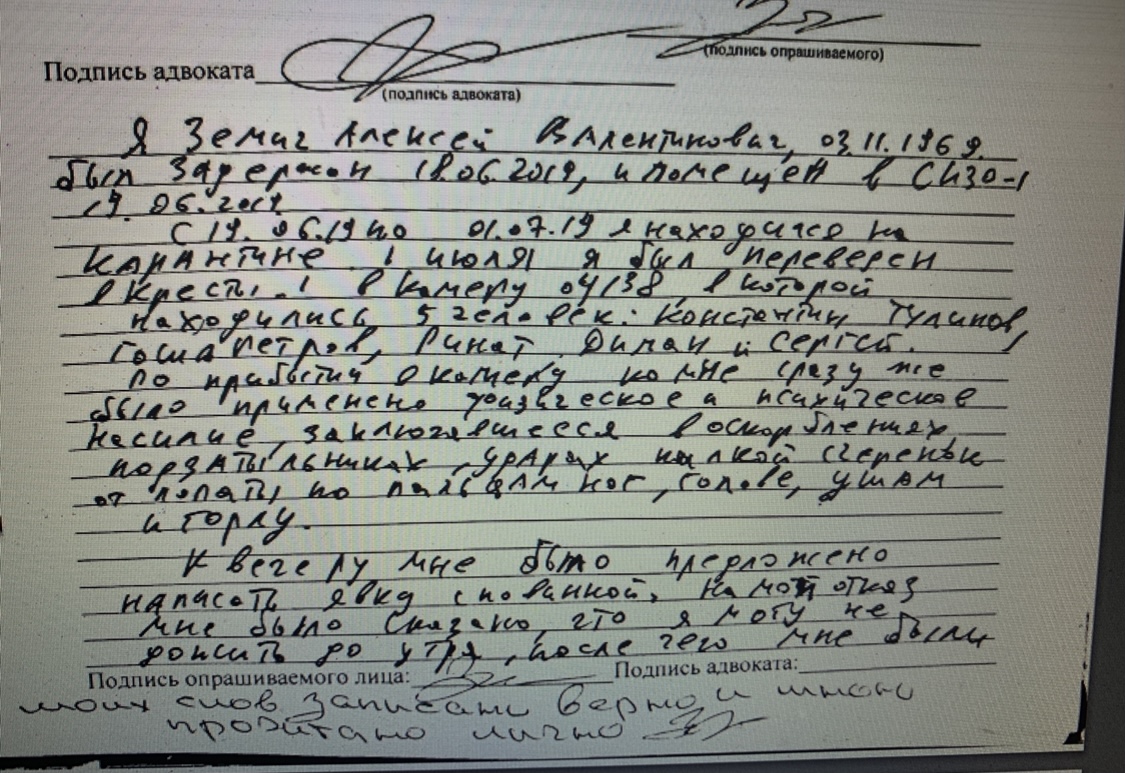 (подпись опрашиваемого)
Подпись адвоката
(подпись адвоката)
Я Земиг Алексей Валентинович, 03.11.1969
был задержан 18.06.2019, и помещен в СИЗО-1
19.06.2019
С 19.06.19 по 01.07.19 я находился на
карантине 1 июля я был переведен
в Кресты 1 в камеру 04/38, в которой
находились 5 человек: Константин Тулинов,
Гоша Петров, Ринат, Диман и Сергей.
По прибытии в камеру ко мне сразу же
было применено физическое и психическое
насилие, заключавшееся в оскорблениях,
подзатыльниках, ударах палкой (черенок
от лопаты по пальцам ног, голове, ушам
и горлу.
К вечеру мне было предложено
написать явку с повинной. На мой отказ
мне было сказано, что я могу не
дожить до утра, после чего мне были
Подпись опрашиваемого лица: Подпись адвоката:
моих слов записано верно и мною
прочитано лично